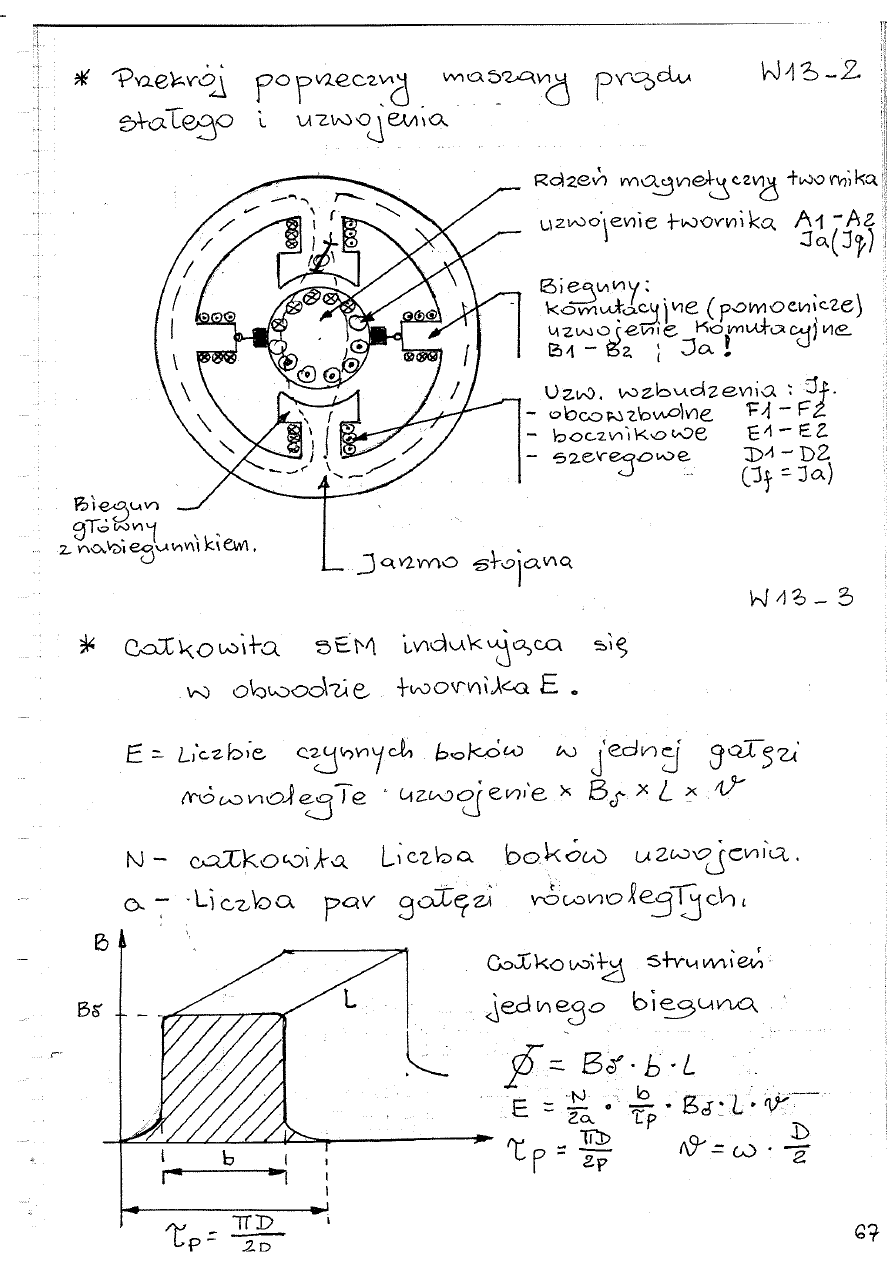 * Przekrój poprzeczny maszany prądu W13-2
stałego i uzwojenia
Rdzeń magnetyczny twornika
uzwojenie twornika A1-A2
Ja(Jq)
Bieguny:
komutacyjne (pomocnicze)
uzwojenie komutacyjne
B1-B2 ; Ja!
Uzw. wzbudzenia: Jf.
- obcowzbudne F1-F2
- bocznikowe E1-E2
- szeregowe D1-D2
(Jf = Ja)
Φ
Biegun
główny
z nabiegunnikiem.
Jarzmo stojana
W13-3
* Całkowita SEM indukująca się
w obwodzie twornika E.
E = Liczbie czynnych boków w jednej gałęzi
równoległe uzwojenie × Bδ × L × v
N - całkowita Liczba boków uzwojenia.
a - Liczba par gałęzi równoległych,
B
Bδ
L
b
τp = πD/2p
Całkowity strumień
jednego bieguna
Φ = Bδ · b · L
E = N/2a · b/τp · Bδ · L · v
τp = πD/2p v = ω · D/2
67